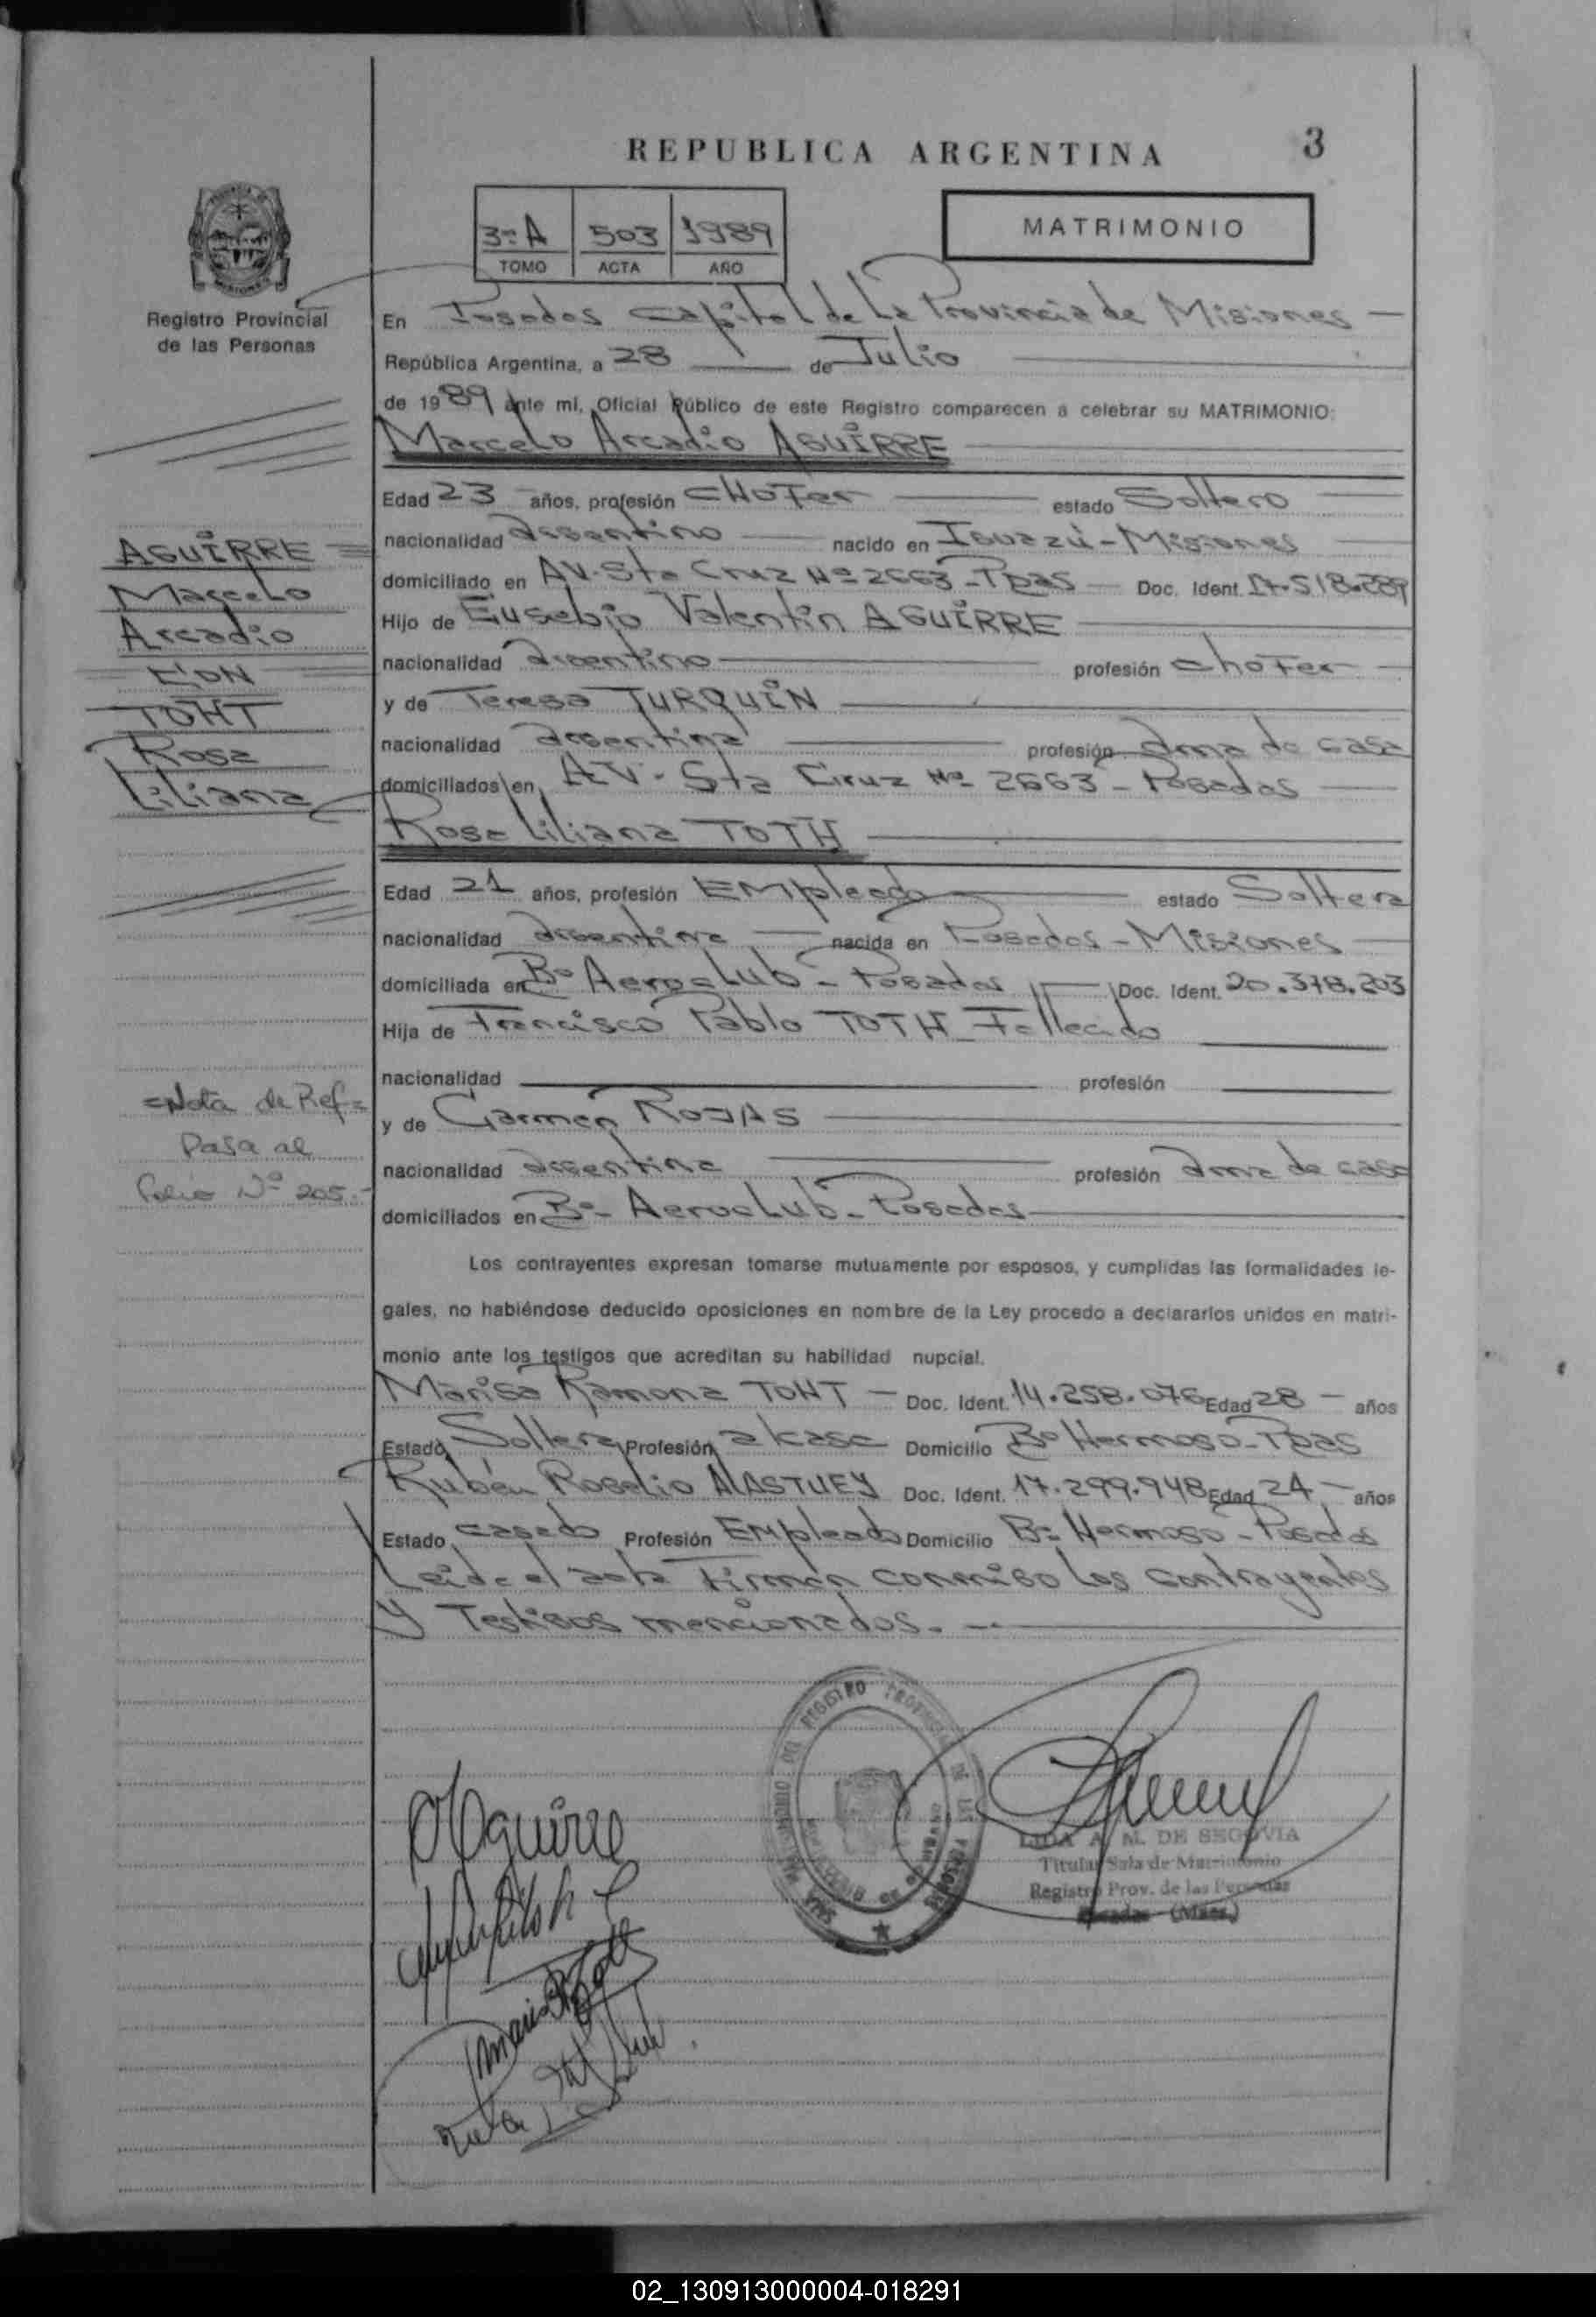 REPUBLICA ARGENTINA
3
3ª A 503 1989
TOMO ACTA AÑO
MATRIMONIO
Registro Provincial
de las Personas
En Posadas Capital de la Provincia de Misiones
República Argentina, a 28 de Julio
de 1989 ante mí, Oficial Público de este Registro comparecen a celebrar su MATRIMONIO:
Marcelo Arcadio AGUIRRE
Edad 23 años, profesión CHOFer estado Soltero
nacionalidad argentino nacido en Iguazú - Misiones
domiciliado en AV. Sta Cruz Nº 2663 - Pdas Doc. Ident. 17.518.289
Hijo de Eusebio Valentin AGUIRRE
nacionalidad argentino profesión choFer
y de Teresa TURQUIN
nacionalidad argentina profesión ama de casa
domiciliados en AV. Sta Cruz Nº 2663 - Posadas
Rosa Liliana TOTH
Edad 21 años, profesión EMpleada estado Soltera
nacionalidad argentina nacida en Posadas - Misiones
domiciliada en Bº Aeroclub - Posadas Doc. Ident. 20.378.203
Hija de Francisco Pablo TOTH - Fallecido
nacionalidad profesión
y de Carmen ROJAS
nacionalidad argentina profesión ama de casa
domiciliados en Bº - Aeroclub - Posadas
Los contrayentes expresan tomarse mutuamente por esposos, y cumplidas las formalidades le-
gales, no habiéndose deducido oposiciones en nombre de la Ley procedo a declararlos unidos en matri-
monio ante los testigos que acreditan su habilidad nupcial.
Marisa Ramona TOHT - Doc. Ident. 14.258.076 Edad 28 - años
Estado Soltera Profesión a/casa Domicilio Bº Hermoso - Pdas
Rubén Rogelio ALASTUEY Doc. Ident. 17.299.948 Edad 24 - años
Estado casado Profesión EMpleado Domicilio Bº Hermoso - Posadas
Leida el acta Firman conmigo los contrayentes
Y Testigos mencionados. -
AGUIRRE
Marcelo
Arcadio
CON
TOHT
Rosa
Liliana
=Nota de Ref=
Pasa al
Folio Nº 205.-
Aguirre
REGISTRO PROVINCIAL DE LAS PERSONAS
LIDA A. M. DE SEGOVIA
Titular Sala de Matrimonio
Registro Prov. de las Personas
Posadas (Mnes.)
02_130913000004-018291